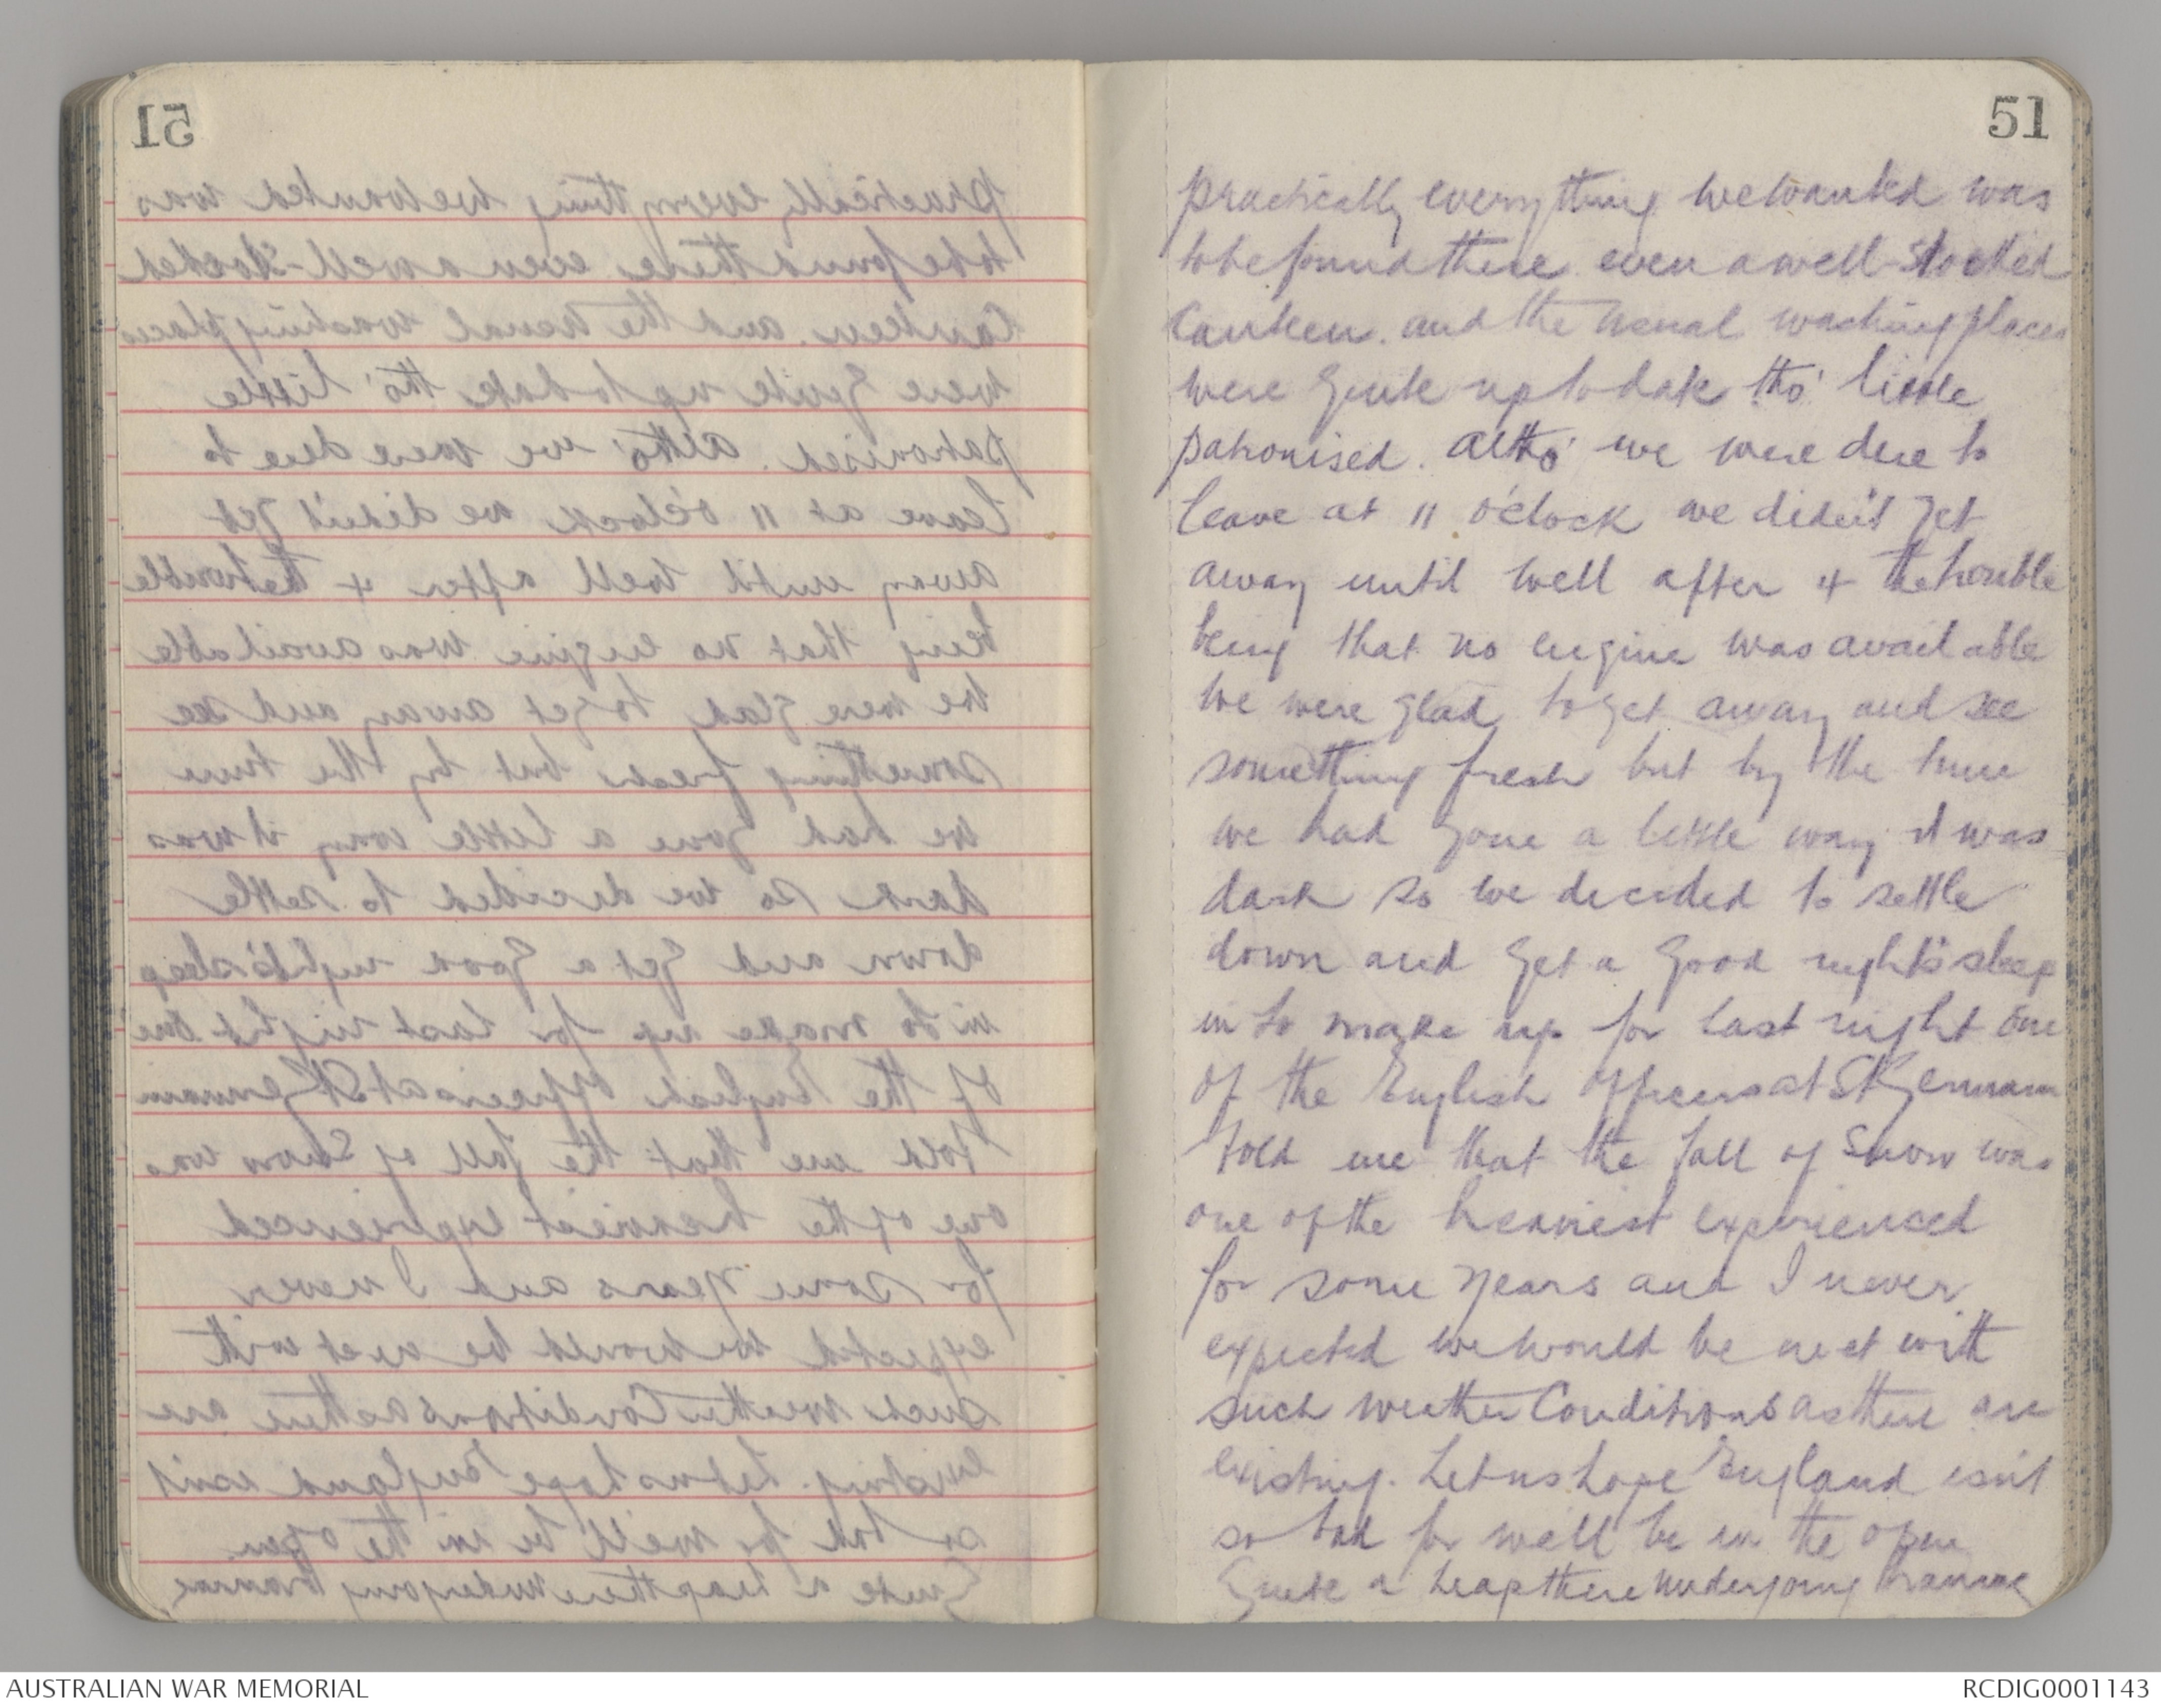 51
practically everything we wanted was
to be found there even a well-stocked
Canteen. and the usual washing places
were quite up to date tho' little
patronised. altho' we were due to
leave at 11 o'clock we didn't get
away until well after 4 the trouble
being that no engine was available
We were glad to get away and see
something fresh but by the time
we had gone a little way it was
dark so we decided to settle
down and get a good night's sleep
in to make up for last night One
of the English officers at St Germain
told me that the fall of snow was
one of the heaviest experienced
for some years and I never
expected we would be met with
such weather Conditions as there are
existing. Let us hope England isn't
so bad for we'll be in the open
Quite a heap there undergoing training
AUSTRALIAN WAR MEMORIAL
RCDIG0001143